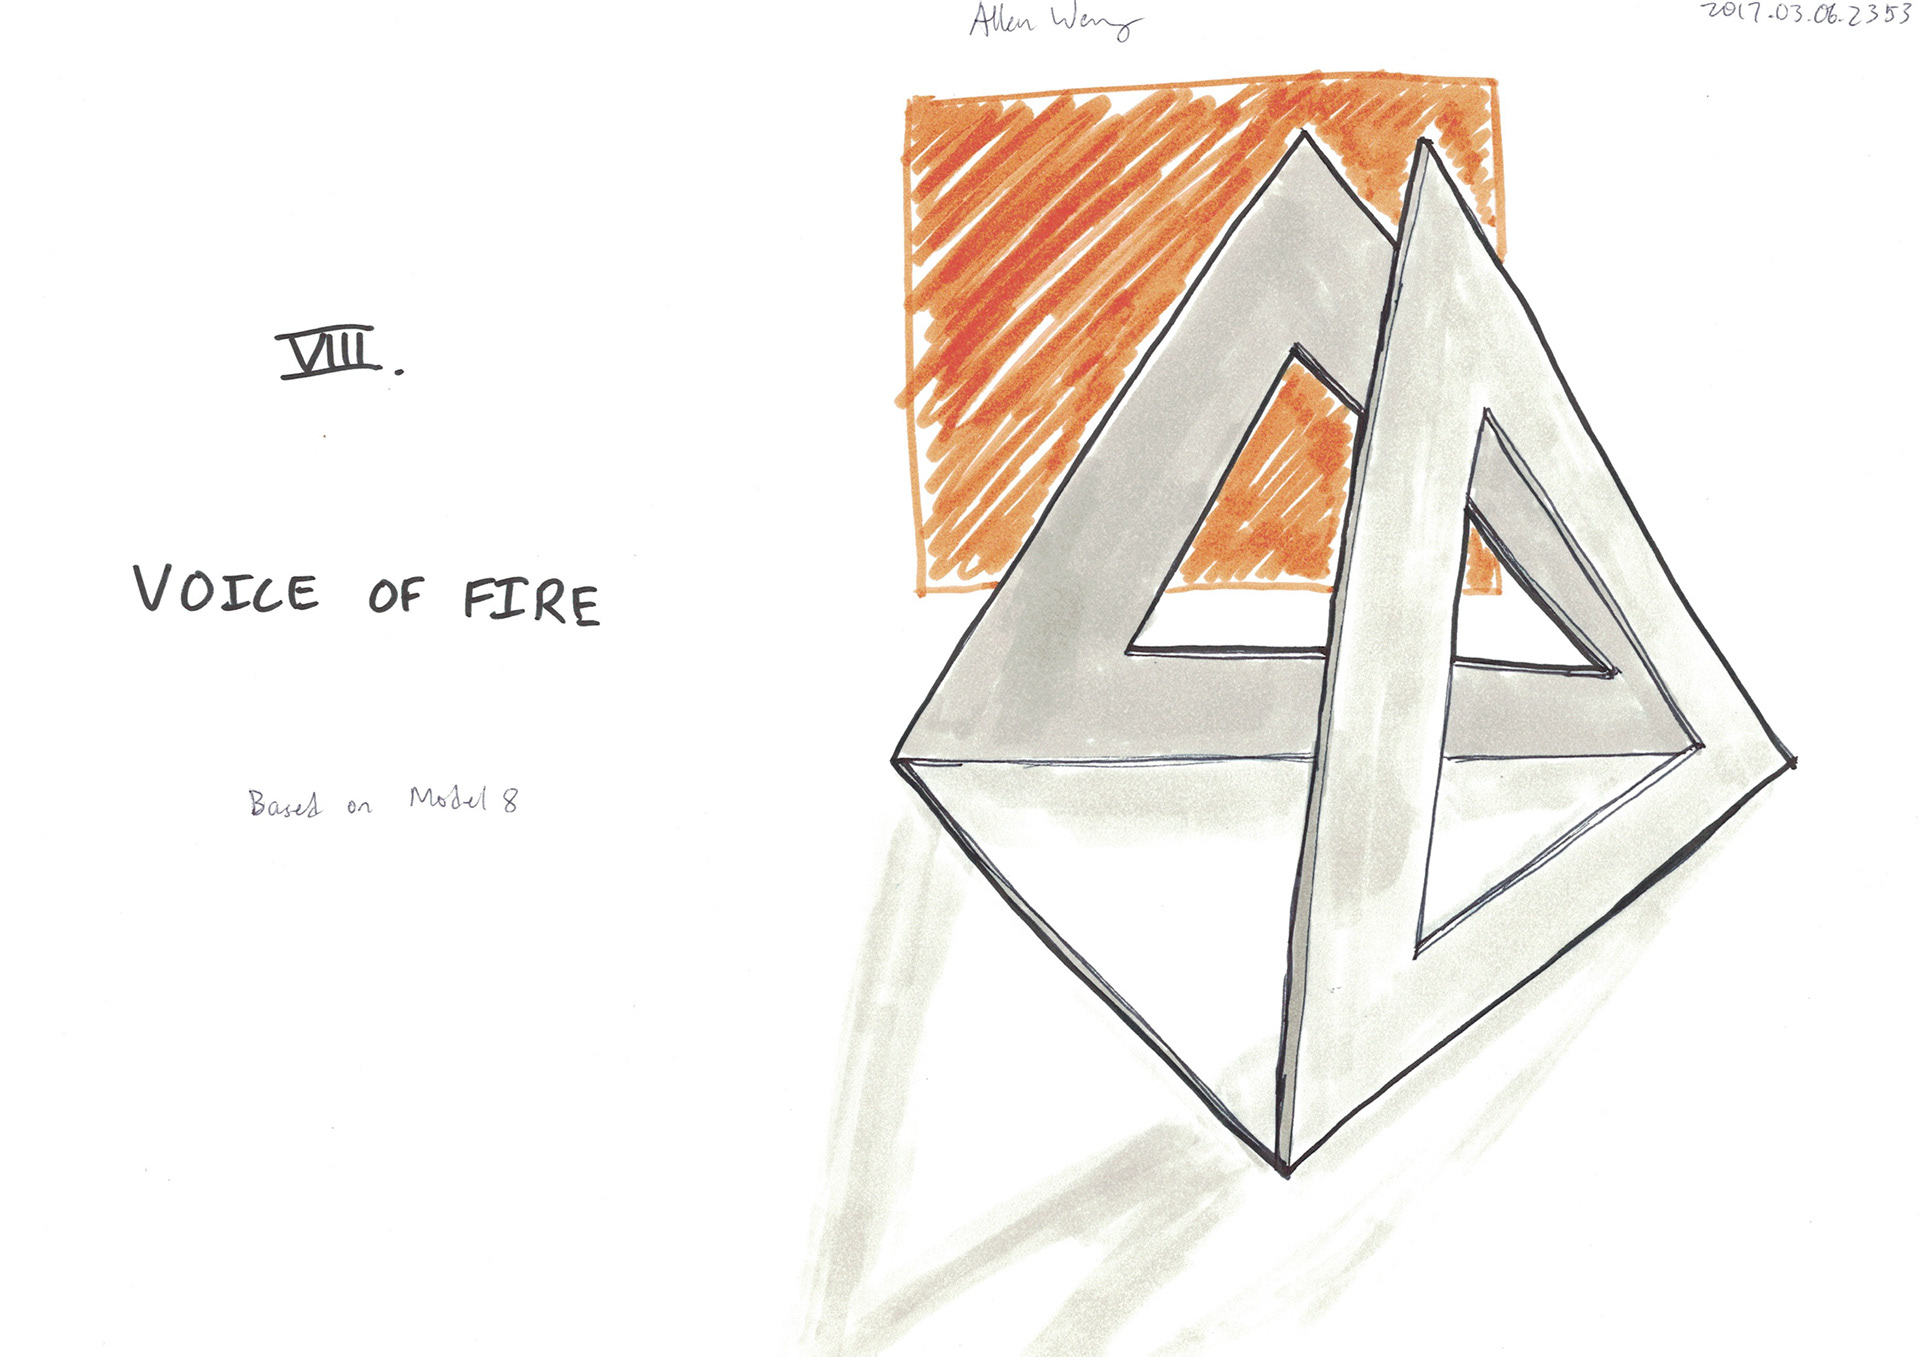 Allen Weng
2017.03.06.2353
VIII.
VOICE OF FIRE
Based on Model 8